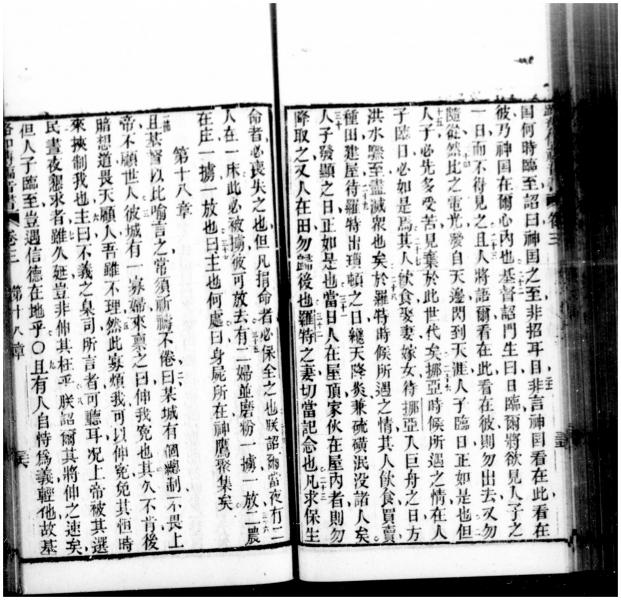 路加傳福音書 卷三
国何時臨至詔曰神国之至非招耳目非言神国看在此看在
彼乃神国在爾心內也基督詔門生曰日臨爾將欲見人子之
一日而不得見之且人將語爾看在此看在彼則勿出去又勿
隨從然比之電光發自天邊閃到天涯人子臨日正如是也但
人子必先多受苦見棄於此世代矣挪亞時候所遇之情在人
子臨日必如是為其人飲食娶妻嫁女待挪亞入巨舟之日方
洪水騐至盡滅衆也矣於羅特時候所遇之情其人飲食買賣
種田建屋待羅特出瑣頓之日纔天降炎兼硫磺泯没諸人矣
人子發顯之日正如是也當日人在屋頂家伙在屋内者則勿
降取之又人在田勿歸後也羅特之妻切當記念也凡求保生
命者必喪失之也但凡捐命者必保全之也朕詔爾當夜有二
人在一床此必被擄彼可放去有二婦並磨粉一擄一放二農
在庄一擄一放也曰主也何處曰身屍所在神鷹聚集矣
第十八章
且基督以此喻言之常須祈禱不倦曰某城有個總制不畏上
帝不顧世人彼城有一寡婦來稟之曰伸我冤也其久不肯後
暗想道畏天顧人吾雖不理然此寡煩我可以伸寃免其恒時
來挾制我也主曰不義之臬司所言者可聽耳况上帝被其選
民晝夜懇求者雖久延豈非伸其枉乎朕詔爾其將伸之速矣
但人子臨至豈遇信德在地乎〇且有人自恃為義輕他故基
路加傳福音書 卷三 第十八章